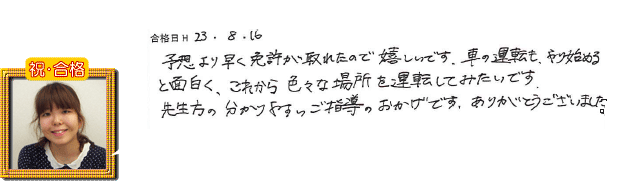 合格日H 23.8.16
予想より早く免許が取れたので嬉しいです。車の運転も、やり始める
と面白く、これから色々な場所を運転してみたいです。
先生方の分かりやすいご指導のおかげです。ありがとうございました。
祝・合格